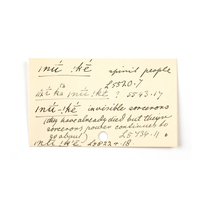 inū́ :kḗ spirit people
L5520.7
inū́ :kḗ ? 6543.17
inū́ :kḗ invisible sorcerors
(they have already died but their
sorcerors power continues to
go about) L5734.11
L6324.18